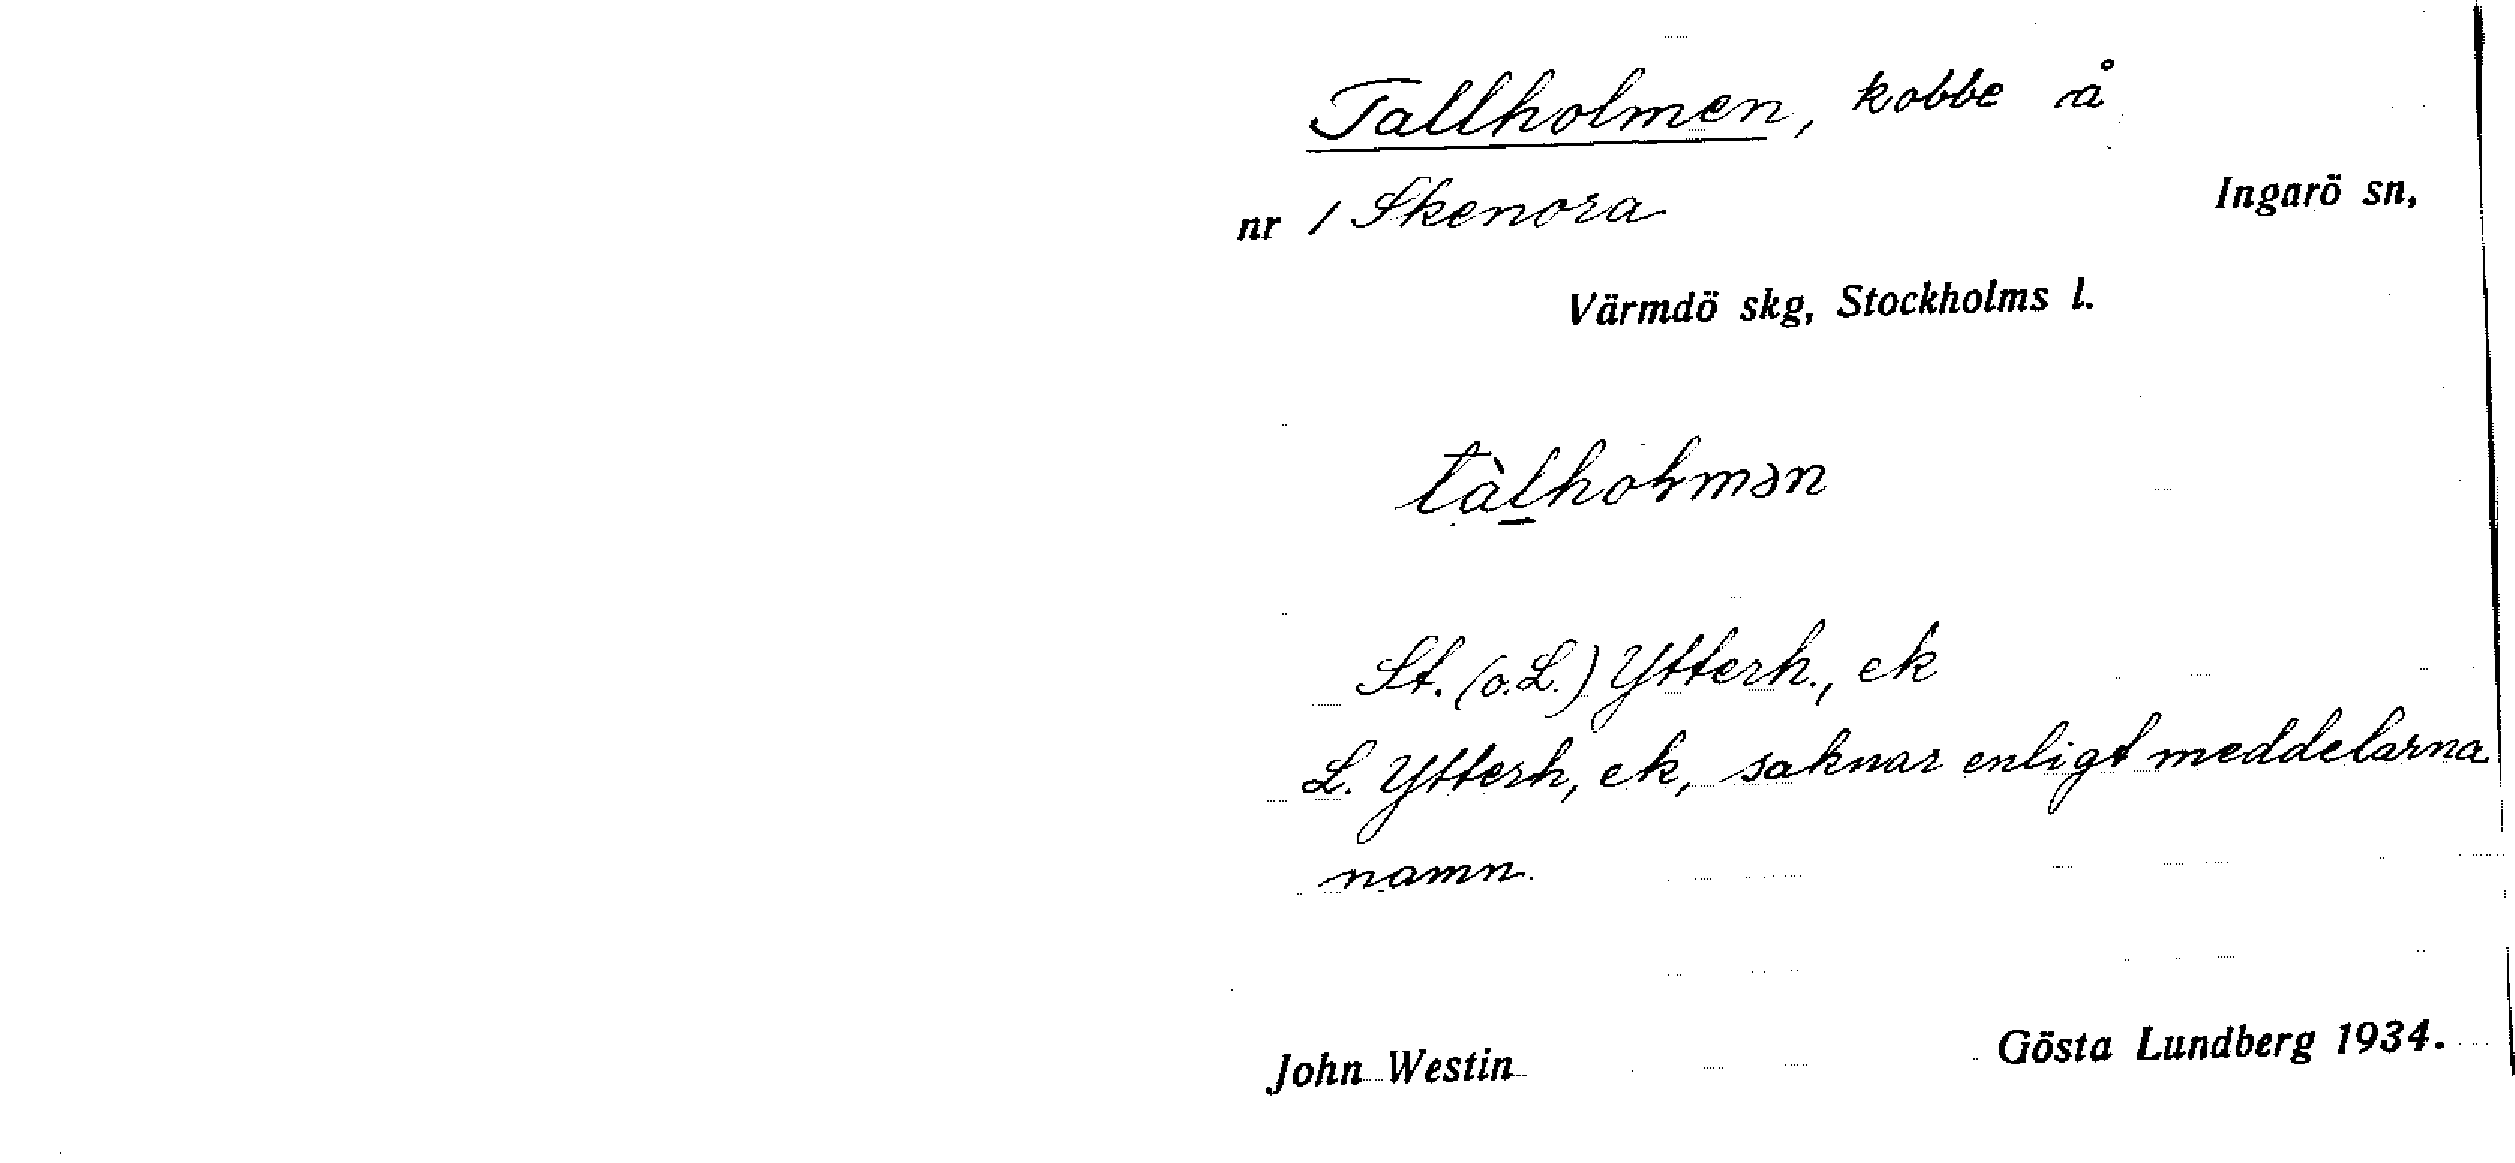 Tallholmen, kobbe å
nr 1 Skenora Ingarö sn,
Värmdö skg, Stockholms l.
tàlholmən
St. (o. L.) Ytterh., ek
L. Ytterh, ek, saknar enligt meddelarna
namn.
John Westin Gösta Lundberg 1934.